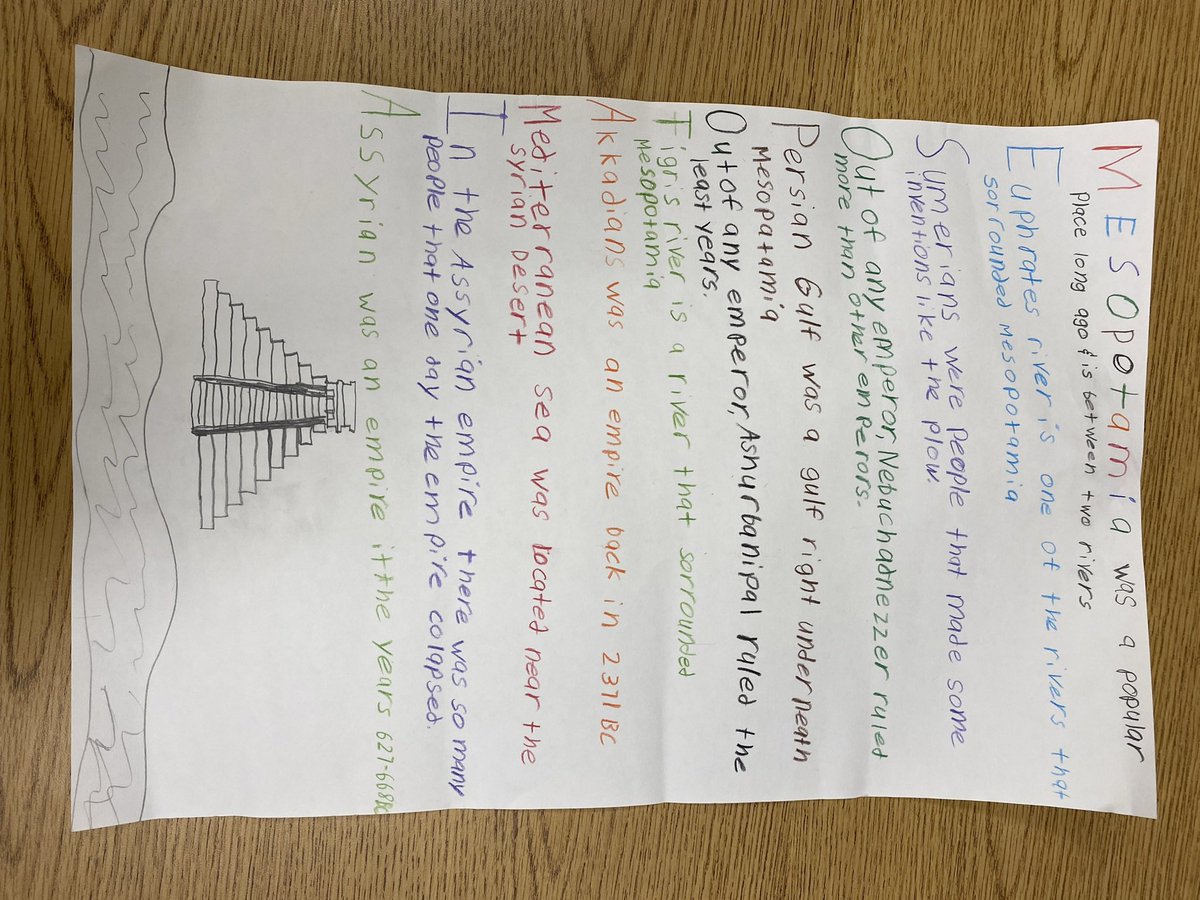 MESOpotamia was a popular
place long ago & is between two rivers
Euphrates river is one of the rivers that
sorrounded Mesopotamia
Sumerians were people that made some
inventions like the plow.
Out of any emperor, Nebuchadnezzer ruled
more than other emperors.
Persian Gulf was a gulf right underneath
Mesopatamia
Out of any emperor, Ashurbanipal ruled the
least years.
Tigris river is a river that sorrounded
Mesopotamia
Akkadians was an empire back in 2371 BC
Mediterranean sea was located near the
Syrian Desert
In the Assyrian empire there was so many
people that one day the empire colapsed.
Assyrian was an empire it the years 627-668